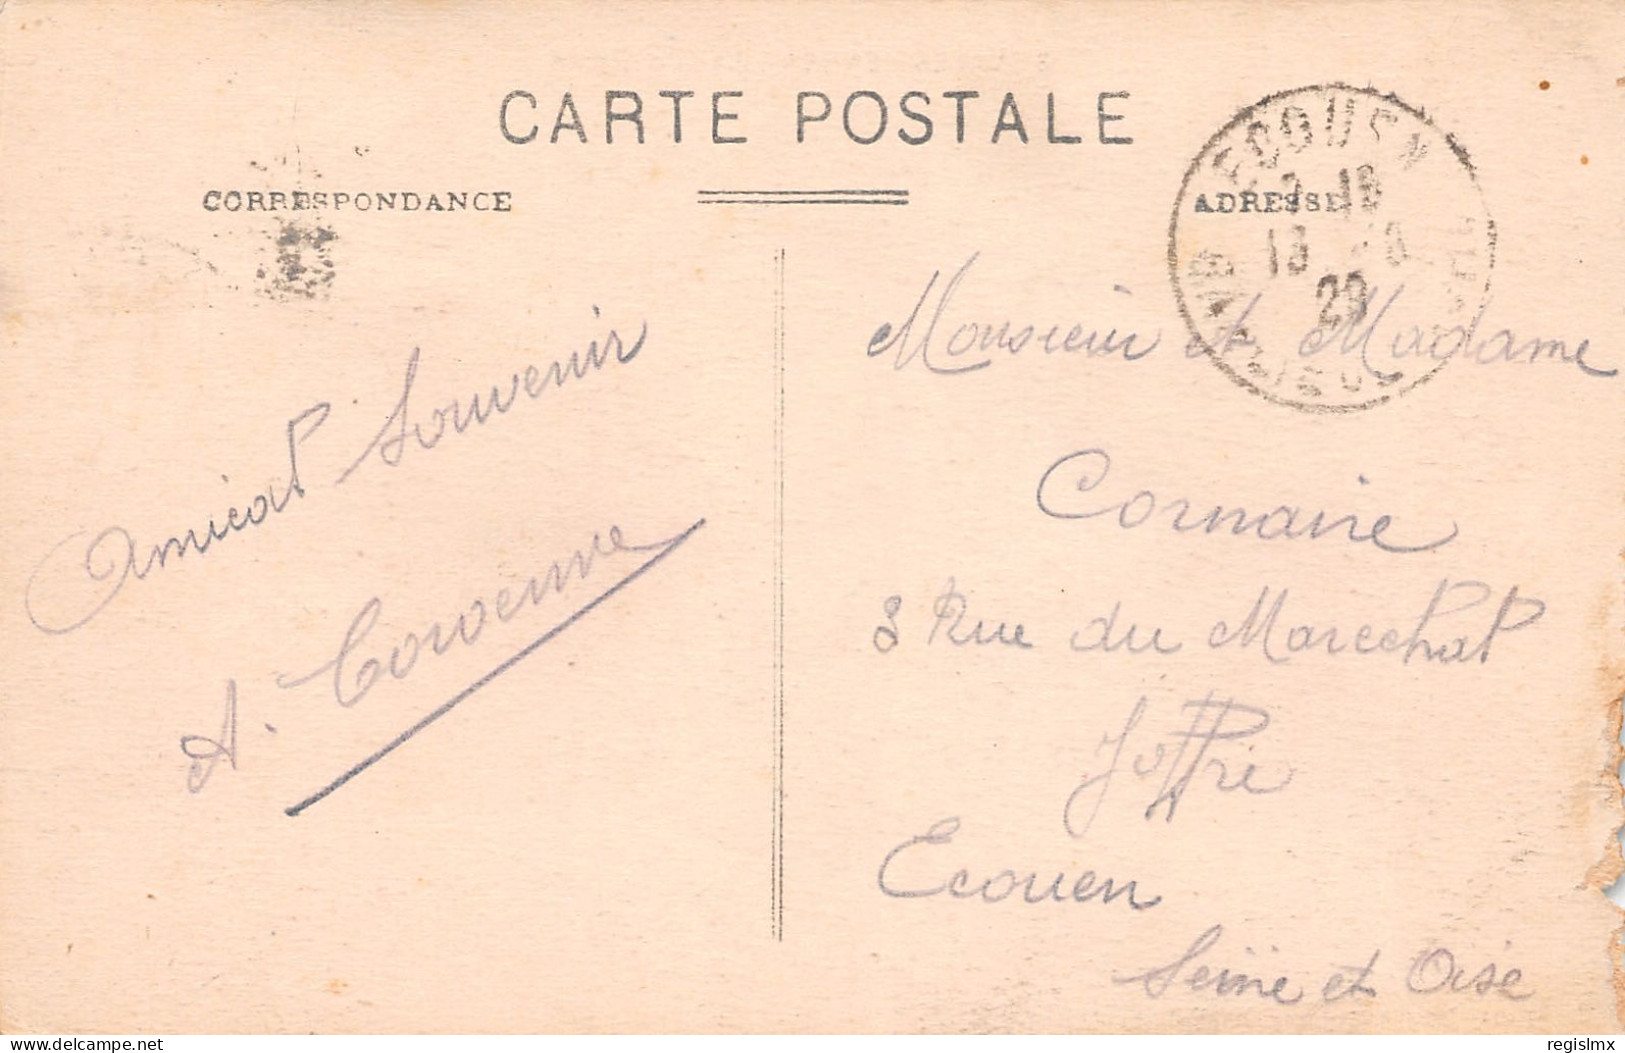 CARTE POSTALE
CORRESPONDANCE
ADRESSE
ECOUEN
13
Amical Souvenir
A.
Monsieur et Madame
Cornaire
3 Rue du Marechal
Joffre
Ecouen
Seine et Oise
delcampe.net
regislmx